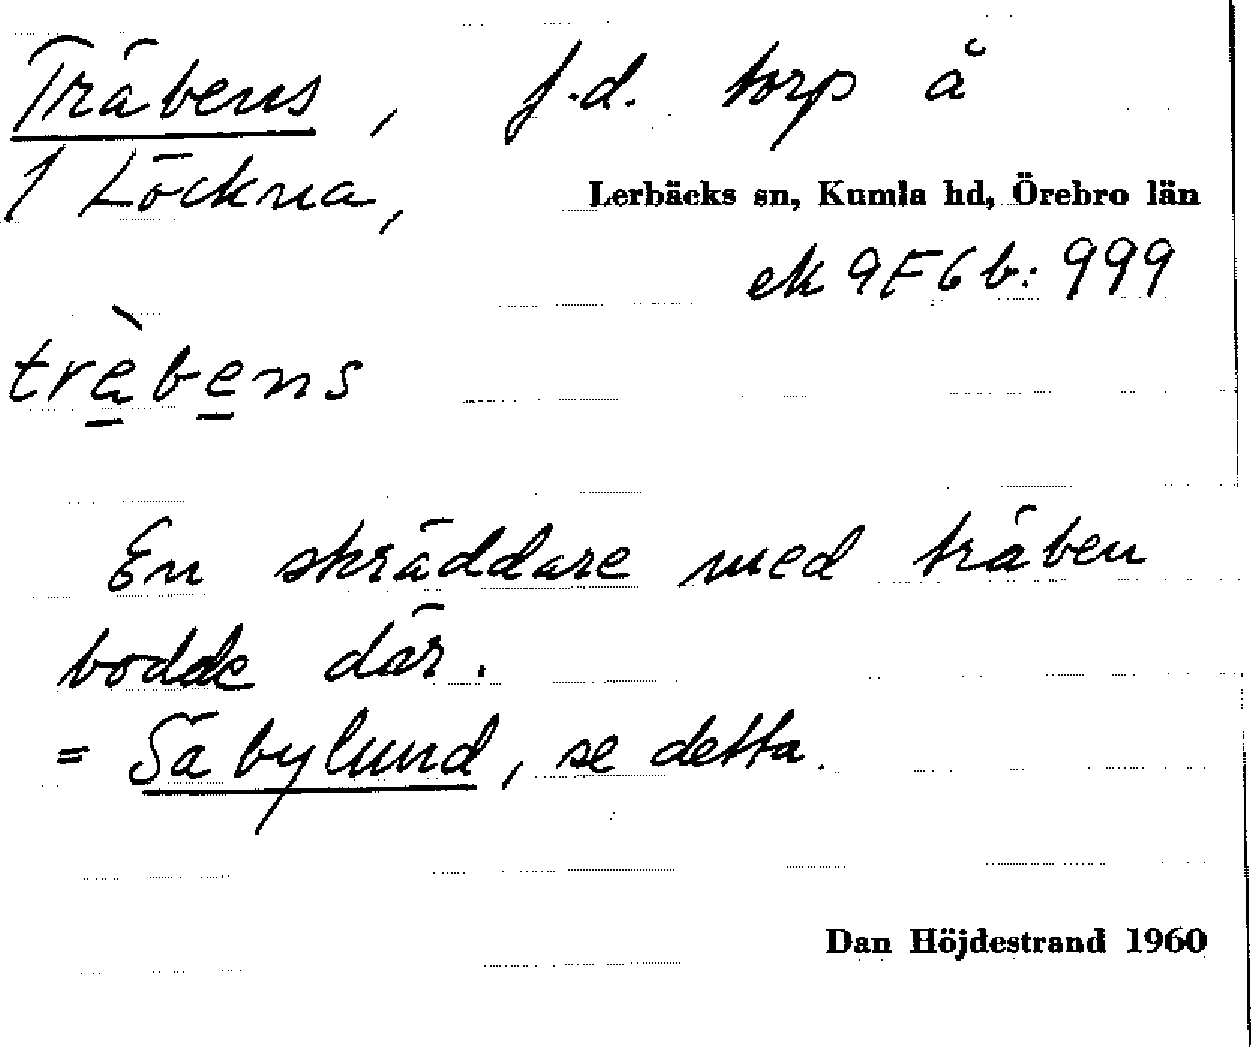 Träbens, f.d. torp å
1 Löckna, Lerbäcks sn, Kumla hd, Örebro län
ek 9F6b: 999
trä̀bens
En skräddare med träben
bodde där.
= Säbylund, se detta.
Dan Höjdestrand 1960